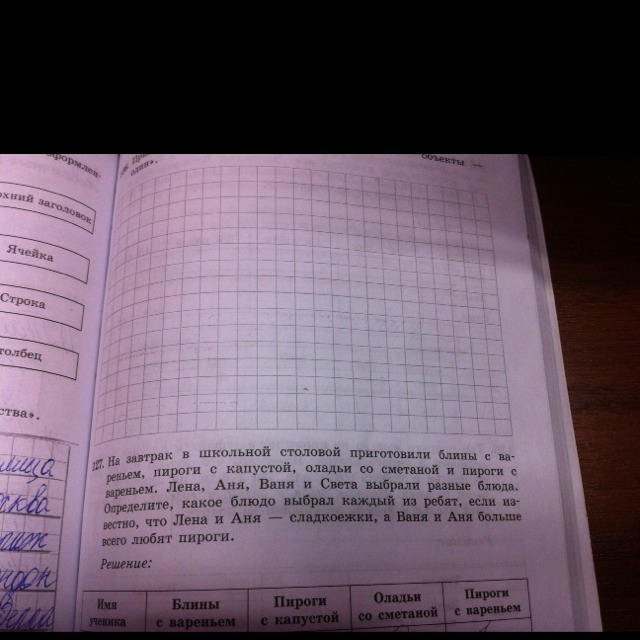 объекты
один».
рхний заголовок
Ячейка
Строка
толбец
ства».
127. На завтрак в школьной столовой приготовили блины с ва-
реньем, пироги с капустой, оладьи со сметаной и пироги с
вареньем. Лена, Аня, Ваня и Света выбрали разные блюда.
Определите, какое блюдо выбрал каждый из ребят, если из-
вестно, что Лена и Аня — сладкоежки, а Ваня и Аня больше
всего любят пироги.
Решение:
Имя ученика
Блины с вареньем
Пироги с капустой
Оладьи со сметаной
Пироги с вареньем